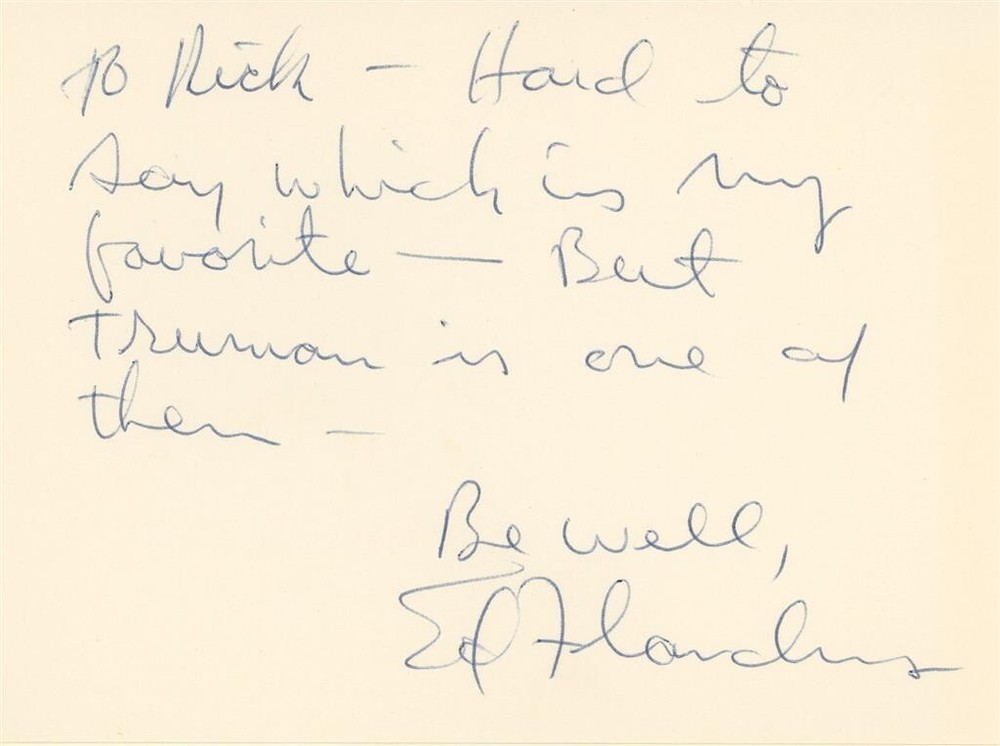 To Rick - Hard to
say which is my
favorite — But
Truman is one of
them -
Be well,
Ed Flanders